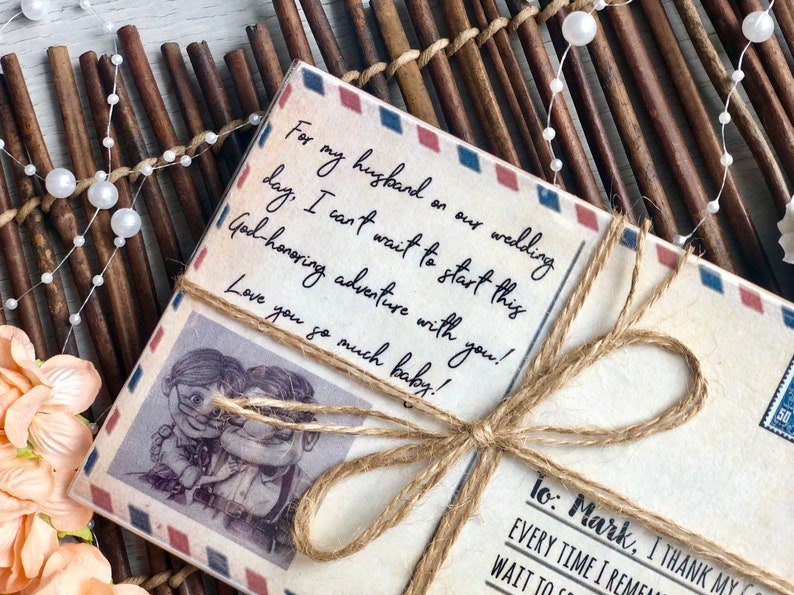 For my husband on our wedding
day, I can't wait to start this
God-honoring adventure with you!
Love you so much baby!
50
To: Mark, I THANK MY
EVERY TIME I REMEM
WAIT TO